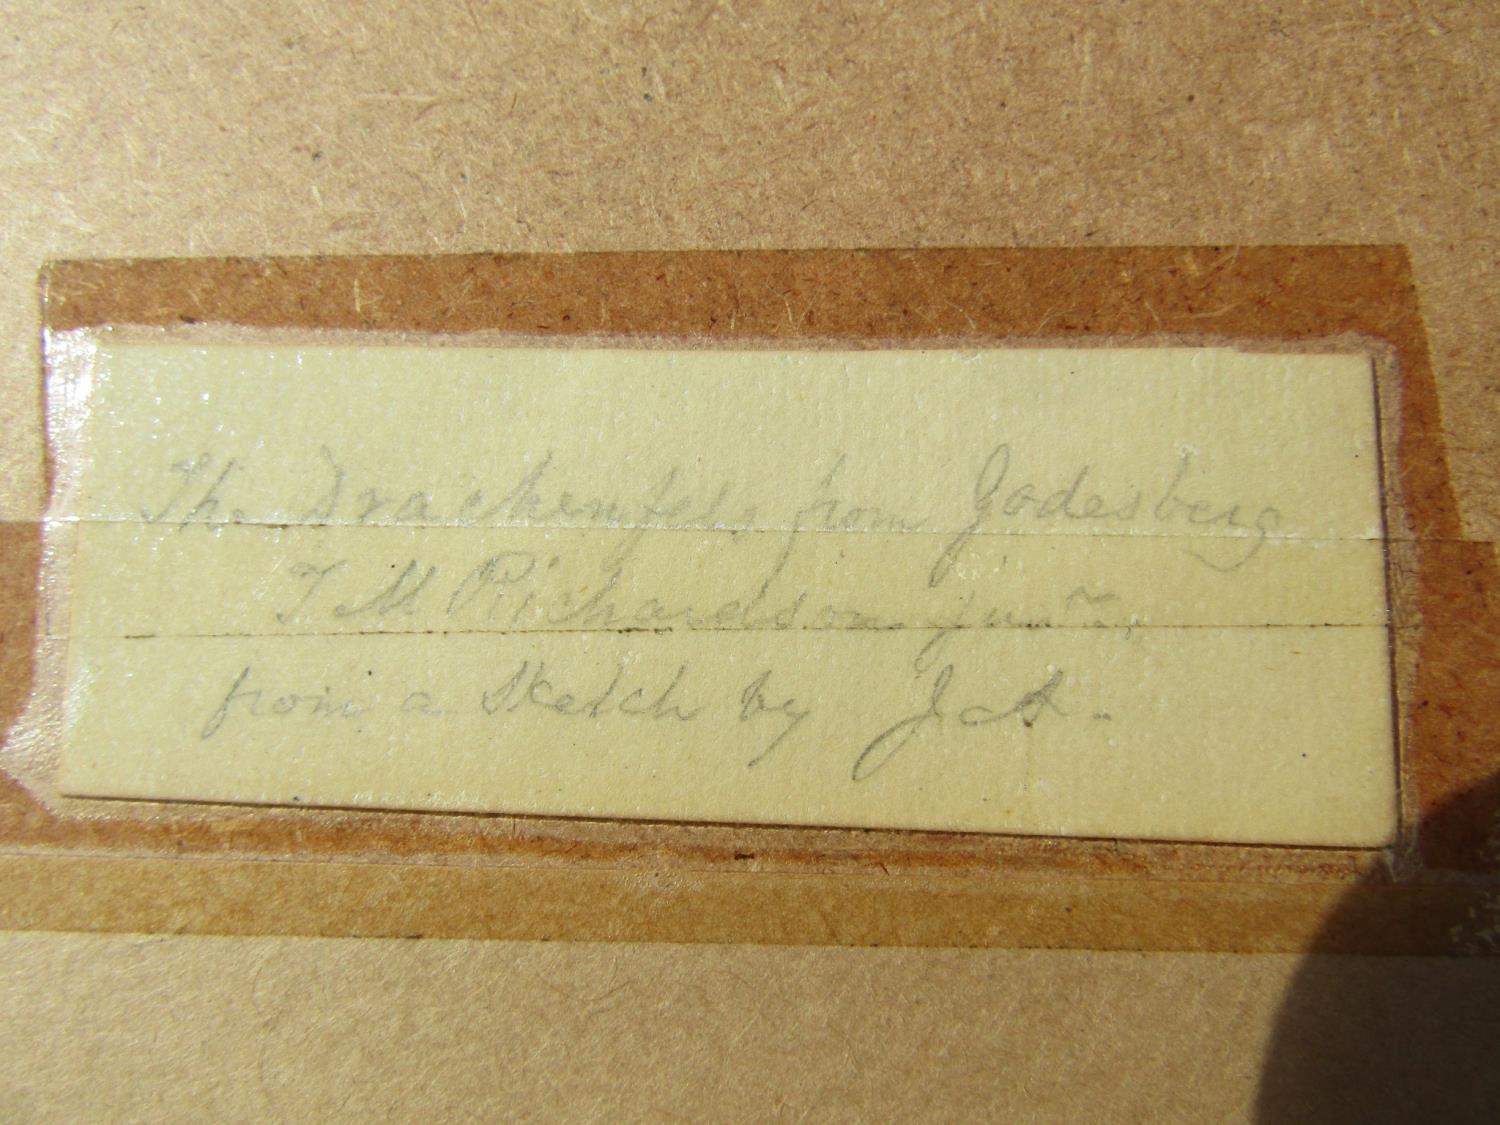 The Drachenfels from Godesberg
T M Richardson junr.
from a sketch by